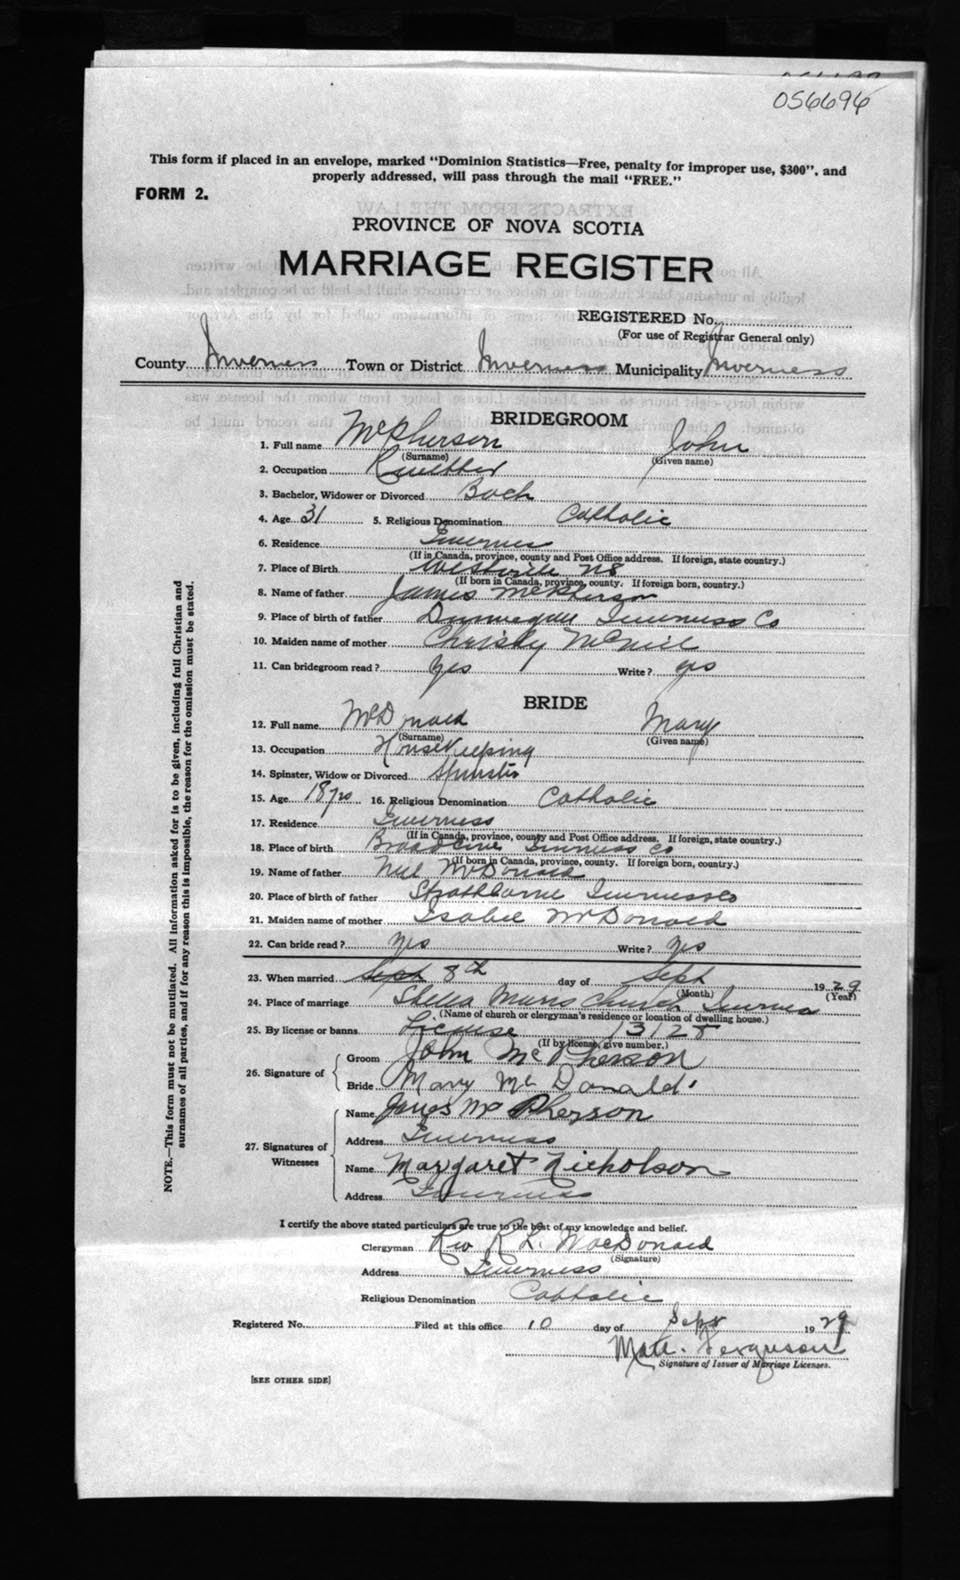 056696
This form if placed in an envelope, marked "Dominion Statistics—Free, penalty for improper use, $300", and
properly addressed, will pass through the mail "FREE."
FORM 2.
PROVINCE OF NOVA SCOTIA
MARRIAGE REGISTER
REGISTERED No.
(For use of Registrar General only)
County Inverness Town or District Inverness Municipality Inverness
BRIDEGROOM
1. Full name McPherson John
(Surname) (Given name)
2. Occupation
3. Bachelor, Widower or Divorced Bach
4. Age 31 5. Religious Denomination Catholic
6. Residence Inverness
(If in Canada, province, county and Post Office address. If foreign, state country.)
7. Place of Birth Westville NS
(If born in Canada, province, county. If foreign born, country.)
8. Name of father James McPherson
9. Place of birth of father Dunvegan Inverness Co
10. Maiden name of mother Christy McNeil
11. Can bridegroom read? Yes Write? yes
BRIDE
12. Full name McDonald Mary
(Surname) (Given name)
13. Occupation Housekeeping
14. Spinster, Widow or Divorced Spinster
15. Age 18 yrs 16. Religious Denomination Catholic
17. Residence Inverness
(If in Canada, province, county and Post Office address. If foreign, state country.)
18. Place of birth Broad Cove Inverness Co
(If born in Canada, province, county. If foreign born, country.)
19. Name of father Neil McDonald
20. Place of birth of father Strathlorne Inverness Co
21. Maiden name of mother Isabel McDonald
22. Can bride read? yes Write? yes
23. When married Sept 8th day of Sept 1929
(Month) (Year)
24. Place of marriage Stella Maris Church Inverness
(Name of church or clergyman's residence or location of dwelling house.)
25. By license or banns License 13128
(If by license, give number.)
26. Signature of
Groom John McPherson
Bride Mary McDonald
27. Signatures of Witnesses
Name James McPherson
Address Inverness
Name Margaret Nicholson
Address Inverness
I certify the above stated particulars are true to the best of my knowledge and belief.
Clergyman Rev R L MacDonald
(Signature)
Address Inverness
Religious Denomination Catholic
Registered No. Filed at this office 10 day of Sept 1929
Ferguson
Signature of Issuer of Marriage Licenses.
[SEE OTHER SIDE]
NOTE.—This form must not be mutilated. All information asked for is to be given, including full Christian and
surnames of all parties, and if for any reason this is impossible, the reason for the omission must be stated.